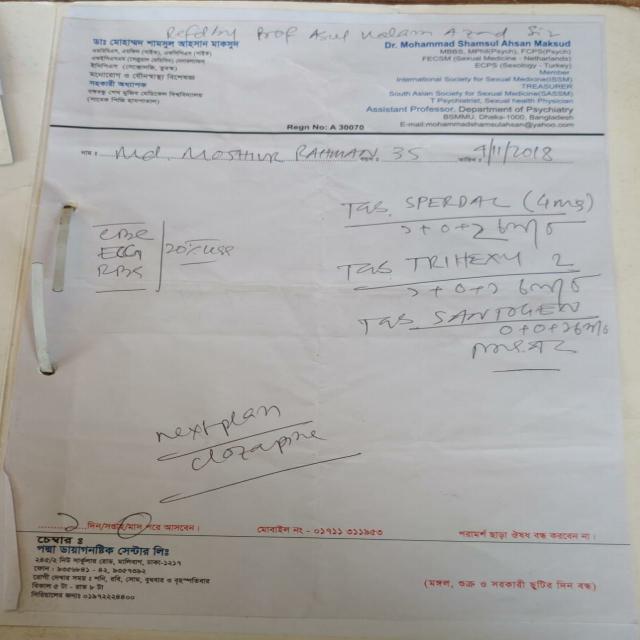 Refd by Prof Asul Kalam Azad Sir
ডাঃ মোহাম্মদ শামসুল আহসান মাকসুদ
এমবিবিএস, এমফিল (সাইক), এফসিপিএস (সাইক)
মনোরোগ ও যৌনস্বাস্থ্য বিশেষজ্ঞ
সহকারী অধ্যাপক
বঙ্গবন্ধু শেখ মুজিব মেডিকেল বিশ্ববিদ্যালয়
(সাবেক পিজি হাসপাতাল)
Dr. Mohammad Shamsul Ahsan Maksud
MBBS, MPhil(Psych), FCPS(Psych)
FECSM (Sexual Medicine - Netherlands)
ECPS (Sexology - Turkey)
Member
International Society for Sexual Medicine(ISSM)
TREASURER
South Asian Society for Sexual Medicine(SASSM)
T Psychiatrist, Sexual health Physician
Assistant Professor, Department of Psychiatry
BSMMU, Dhaka-1000, Bangladesh
E-mail:mohammadshamsulahsan@yahoo.com
Regn No: A 30070
নাম : Md. MOSHIUR RAHMAN 35 তারিখ /11/2018
Tab. SPERDAL (4mg)
CBC
ECG
RBS
Tab TRIHEXY 2
Tab SANTOGEN
next plan
clozapine
2 দিন/সপ্তাহ/মাস পরে আসবেন।
মোবাইল নং - ০১৭১১ ৩১১৯৫৩
পরামর্শ ছাড়া ঔষধ বন্ধ করবেন না।
চেম্বার ঃ
পদ্মা ডায়াগনষ্টিক সেন্টার লিঃ
২৪৫/২ নিউ সার্কুলার রোড, মালিবাগ, ঢাকা-১২১৭
ফোন : ৯৩৫৬৪৪১ - ৪২, ৯৩৫৭৩৯২
রোগী দেখার সময় ঃ শনি, রবি, সোম, বুধবার ও বৃহস্পতিবার
বিকাল ৫ টা - রাত ৮ টা
সিরিয়ালের জন্যঃ ০১৯৭২২২৪৪০০
(মঙ্গল, শুক্র ও সরকারী ছুটির দিন বন্ধ)